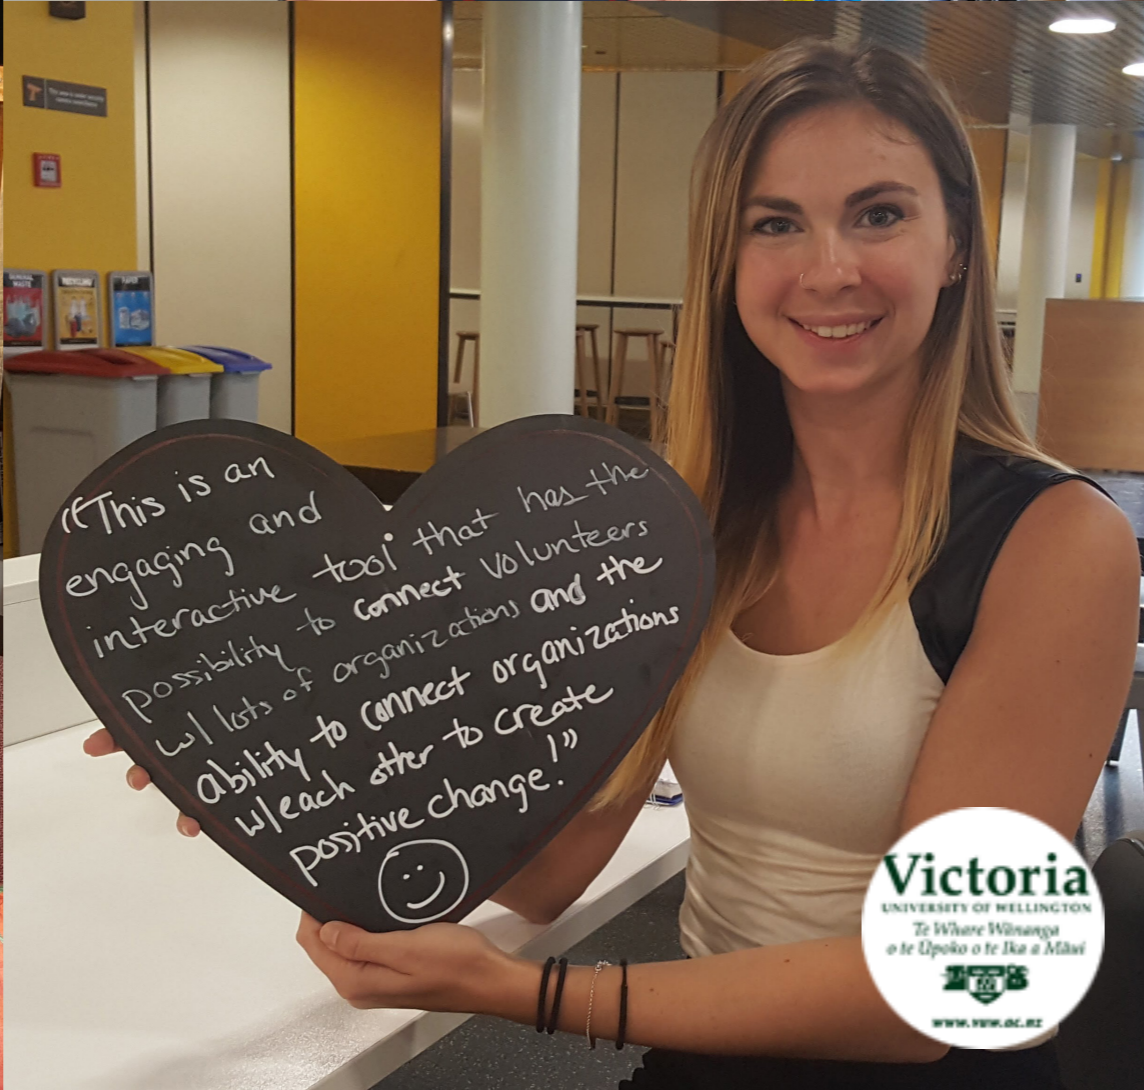 “This is an
engaging and
interactive tool that has the
possibility to connect volunteers
w/ lots of organizations and the
ability to connect organizations
w/each other to create
positive change!”
GENERAL WASTE
RECYCLING
PAPER
Victoria
UNIVERSITY OF WELLINGTON
Te Whare Wānanga
o te Ūpoko o te Ika a Māui
www.vuw.ac.nz